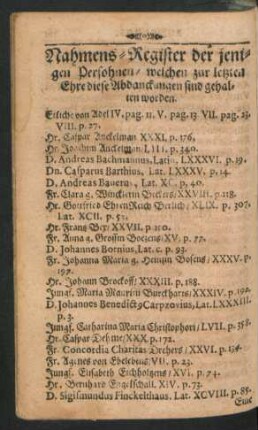 Nahmens-Register der jeni-
gen Persohnen/ welchen zur letzten
Ehre diese Abdanckungen sind gehal-
ten worden.
Etliche von Adel IV. pag. 11. V. pag. 13 VII. pag. 23.
VIII. p. 27.
Hr. Caspar Anckelman XXXI. p. 176.
Hr. Joachim Anckelman LIII. p. 340.
D. Andreas Bachmannus, Latin. LXXXVI. p. 19.
Dn. Casparus Barthius, Lat. LXXXV. p. 14.
D. Andreas Bauerus, Lat. XC. p. 40.
Fr. Clara g. Wincklerin Beckers/ XXVIII. p. 118.
Hr. Gottfried Ehrenreich Berlich/ XLIX. p. 307.
Lat. XCII. p. 52.
Hr. Franz Bex/ XXVII. p. 110.
Fr. Anna g. Grossin Boetzens/ XV. p. 77.
D. Johannes Bornius, Lat. c. p. 93.
Fr. Johanna Maria g. Heinzin Bosens/ XXXV.
p. 197.
Hr. Johann Brockoff/ XXXIII. p. 188.
Jungf. Maria Magdalen Burckharts/ XXXIV. p. 190.
D. Johannes Benedict. Carpzovius, Lat. LXXXIII.
p. 3.
Jungf. Catharina Maria Christophori/ LVII. p. 358.
Hr. Caspar Dehme/ XXX. p. 172.
Fr. Concordia Charitas Drehers/ XXVI. p. 134.
Fr. Agnes von Ebeleben/ VII. p. 23.
Jungf. Elisabeth Eichholtzens/ XVI. p. 74.
Hr. Bernhard Engelschall. XIV. p. 73.
D. Sigismundus Finckelthaus. Lat. XCVIII. p. 85.
Eine